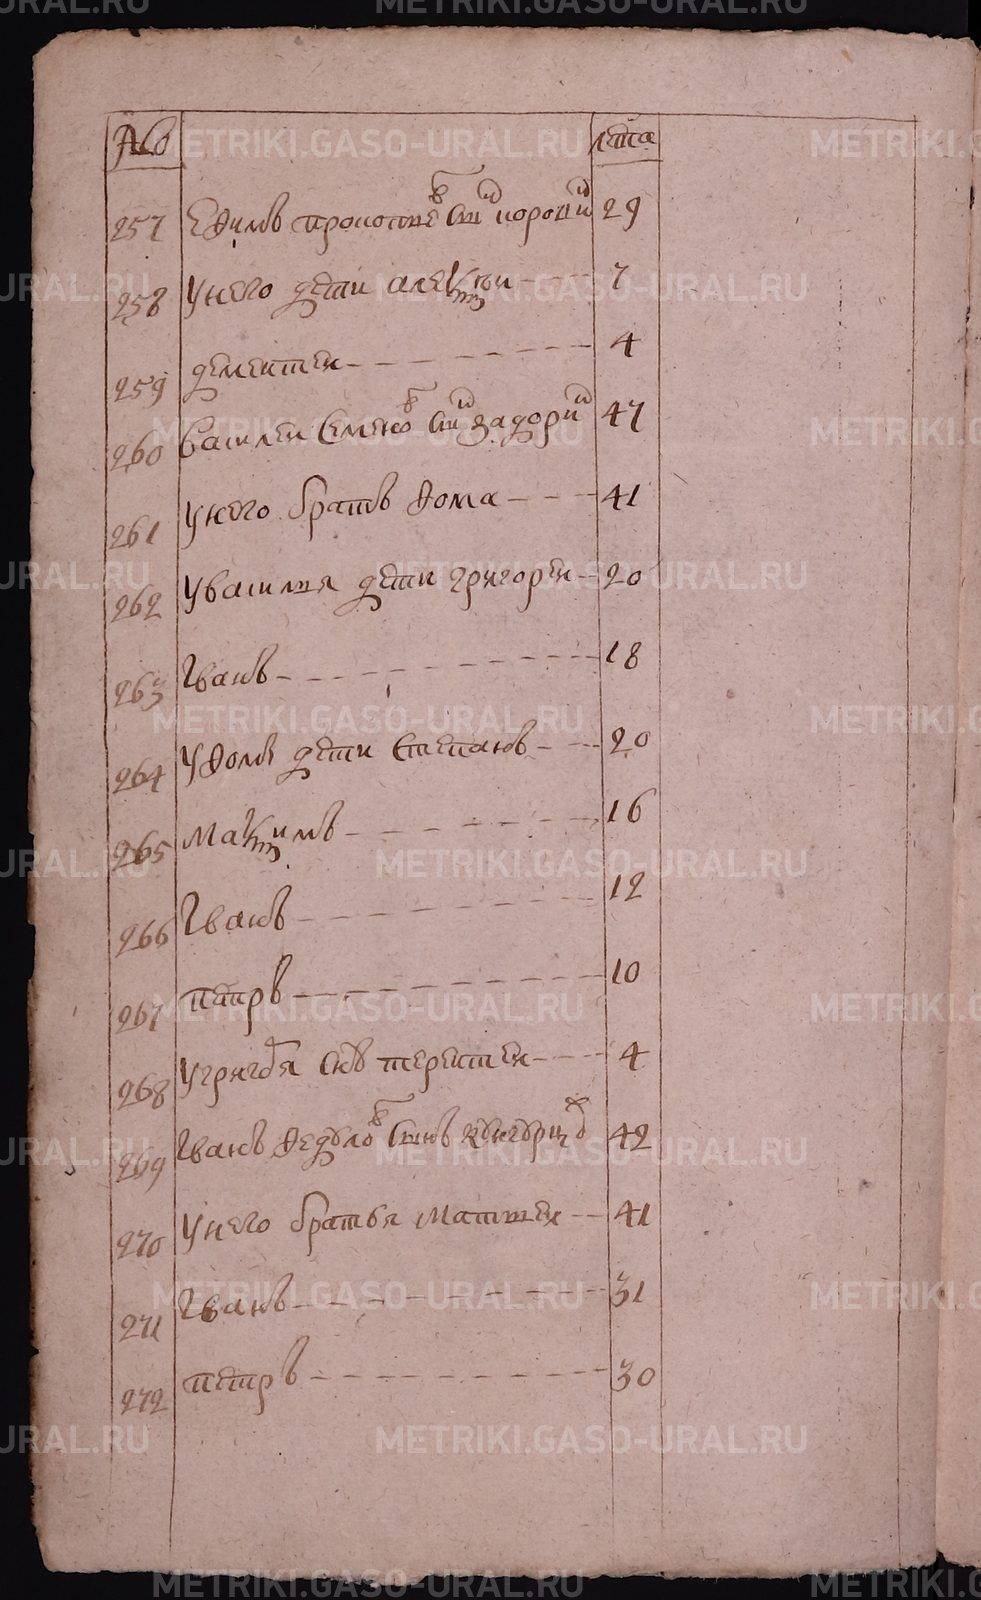 № лета
257 Едимъ прокопьевъ снъ 29
258 У него дети алексеи 7
259 дементеи 4
260 василеи семеновъ снъ 47
261 У него братъ Фома 41
262 У василья дети григореи 20
263 Иванъ 18
264 У Фомы дети Степанъ 20
265 Максимъ 16
266 Иванъ 12
267 петръ 10
268 У григоря снъ терентеи 4
269 Иванъ Федоловъ Сынъ 42
270 У него братья Матвеи 41
271 Иванъ 31
272 петръ 30
METRIKI.GASO-URAL.RU